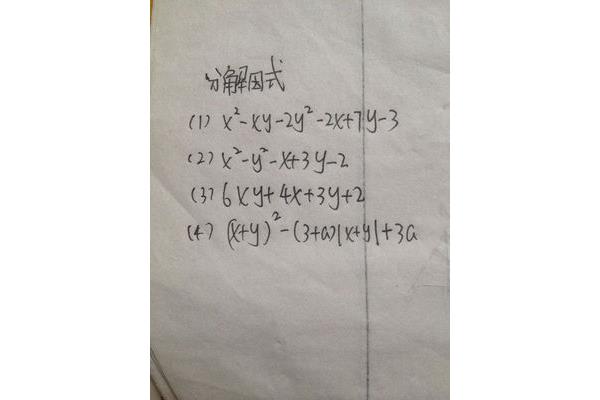 分解因式
(1) x²-xy-2y²-2x+7y-3
(2) x²-y²-x+3y-2
(3) 6xy+4x+3y+2
(4) (x+y)²-(3+a)|x+y|+3a